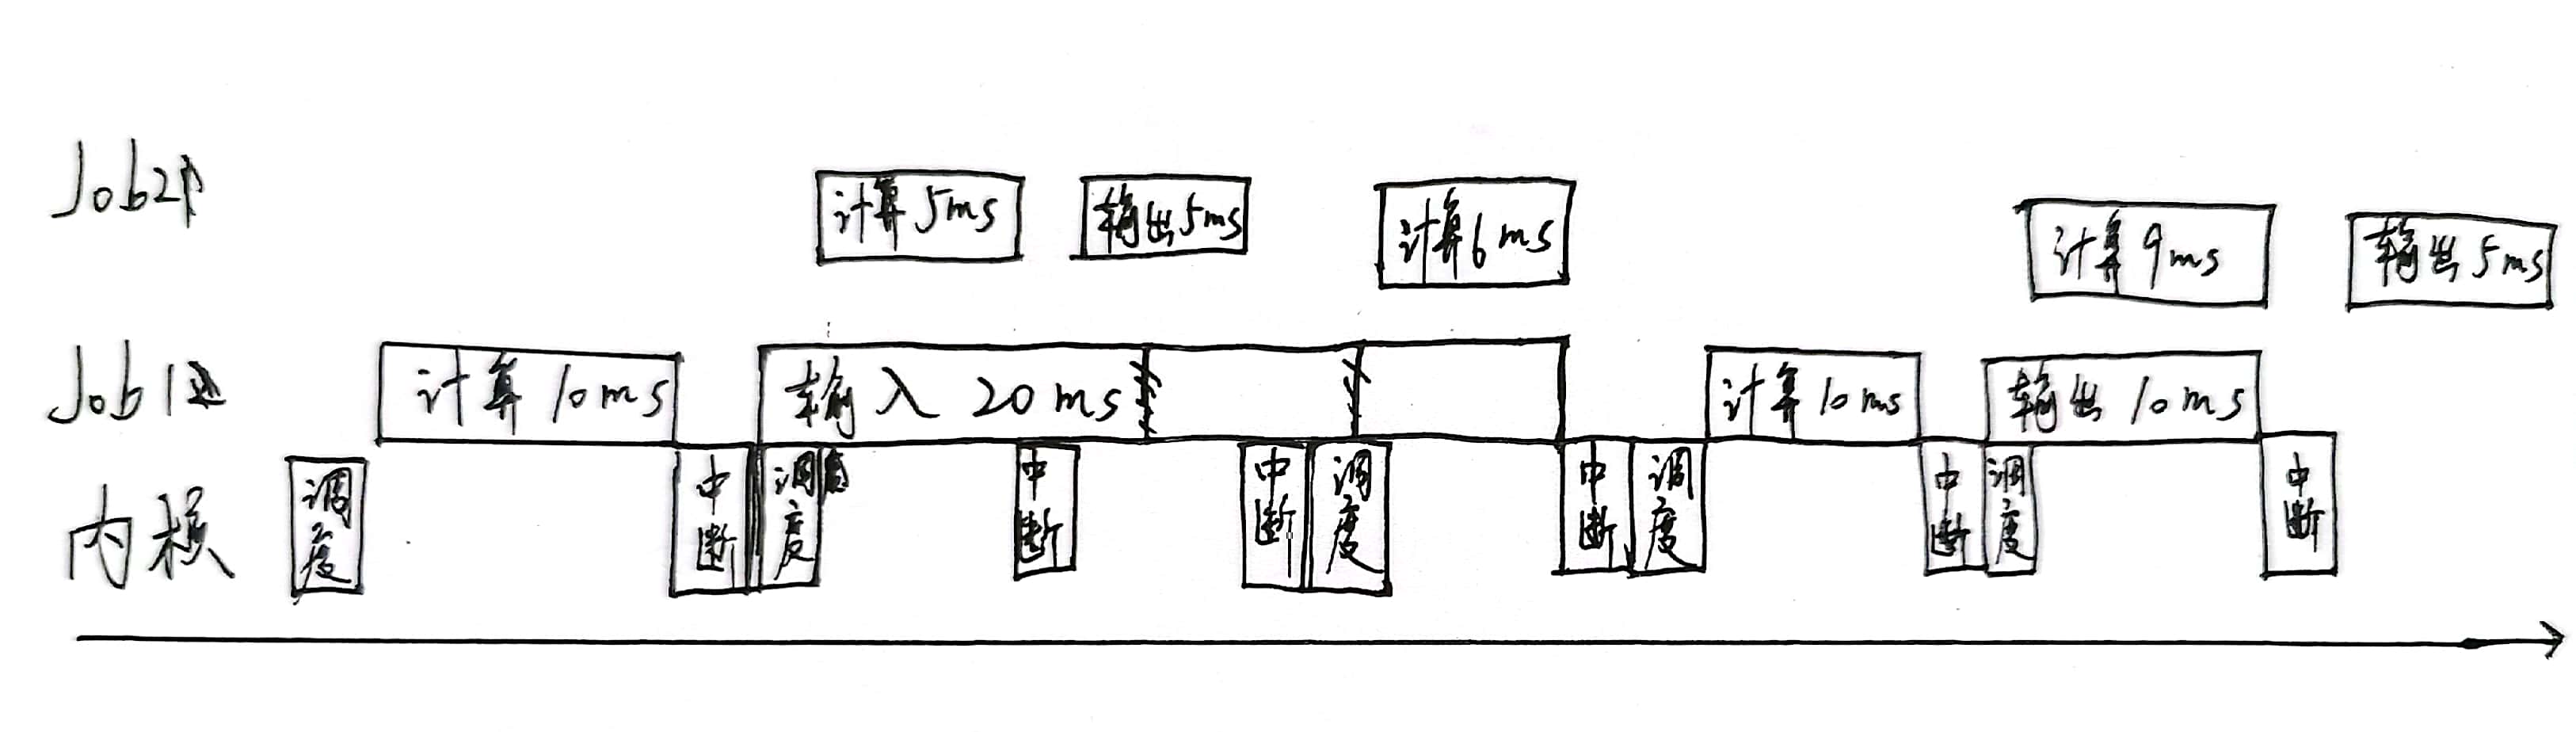 Job2
计算 5ms 输出 5ms 计算 6ms 计算 9ms 输出 5ms
Job1
计算 10ms 输入 20ms 计算 10ms 输出 10ms
内核
调度 中断 调度 中断 中断 调度 中断 调度 中断 调度 中断